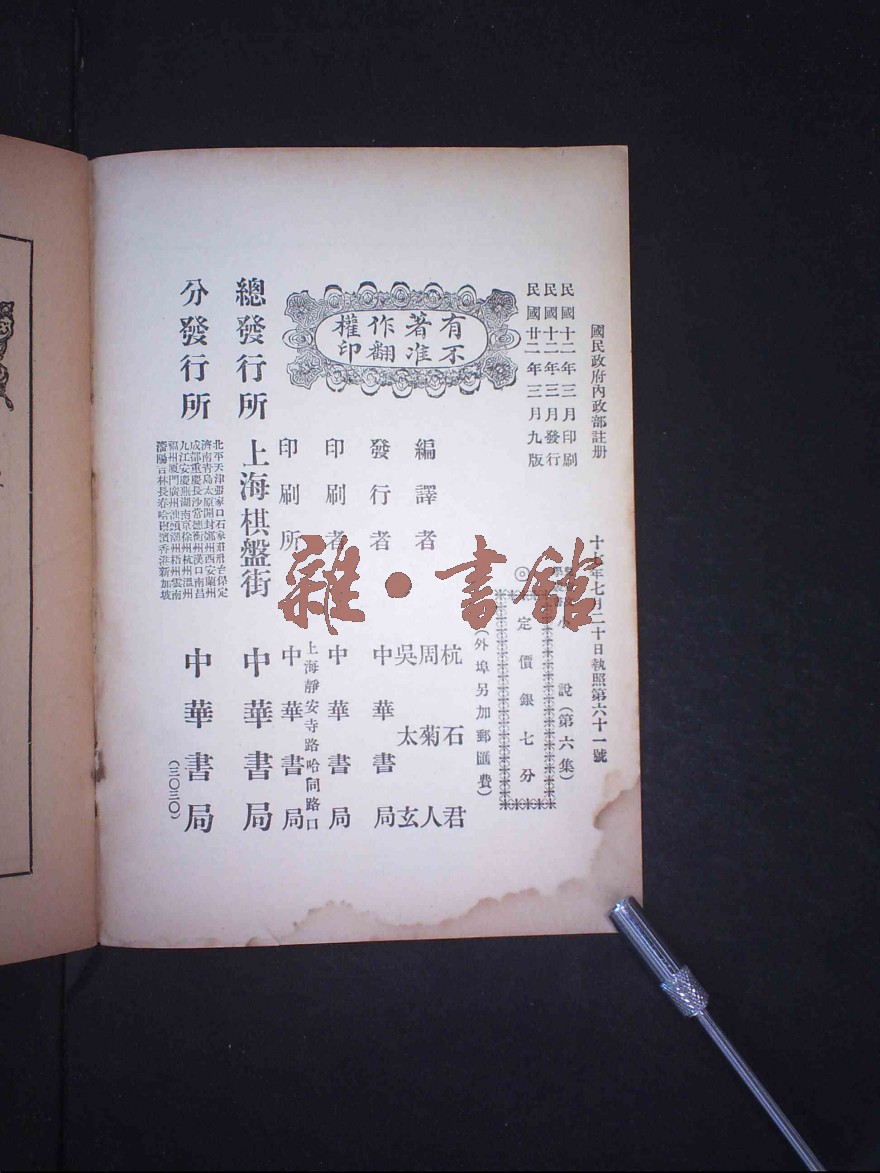 國民政府內政部註册
十 年七月二十日執照第六十一號
民國十二年三月印刷
民國十二年三月發行
民國廿一年三月九版
說(第六集)
◎定價銀七分
(外埠另加郵匯費)
有著作權
不准翻印
編譯者
杭石君
周菊人
吳太玄
發行者 中華書局
印刷者 中華書局
印刷所 上海靜安寺路哈同路口
中華書局
總發行所 上海棋盤街 中華書局
分發行所
北平天津張家口石家莊邢台保定
濟南青島太原開封鄭州西安蘭州
成都重慶長沙常德衡州漢口南昌
九江安慶蕪湖南京徐州杭州溫州
福州廈門廣州汕頭潮州梧州雲南
瀋陽吉林長春哈爾濱香港新加坡
中華書局
(三〇三〇)
雜·書館